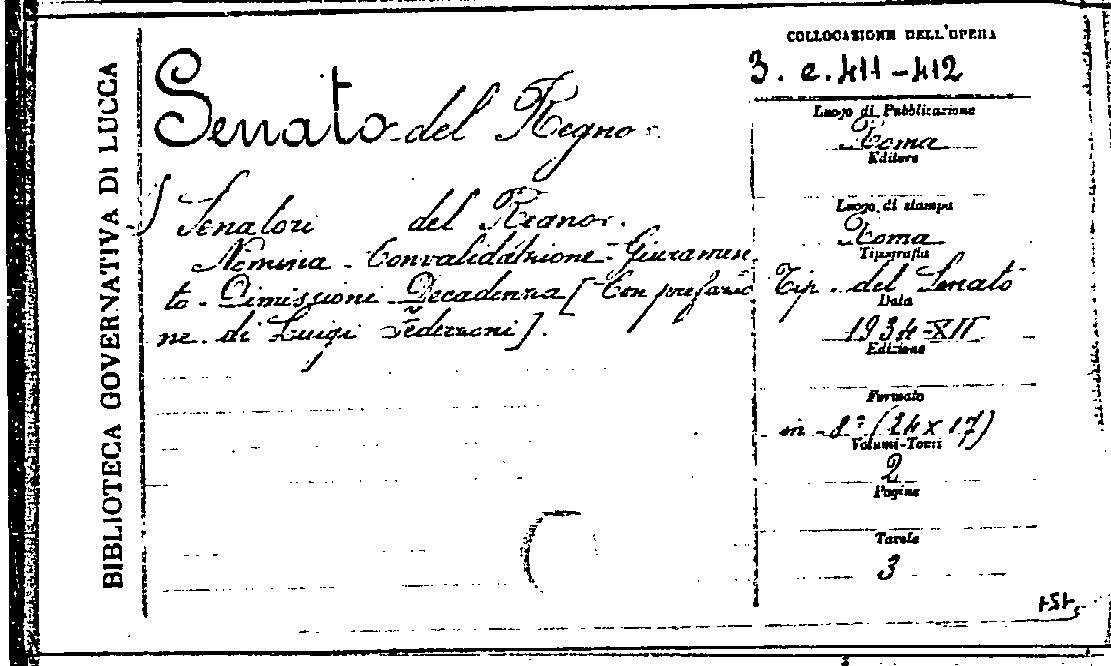 BIBLIOTECA GOVERNATIVA DI LUCCA
Senato del Regno.
Senatori del Regno.
Nomina - Convalidazione - Giuramen-
to - Dimissioni - Decadenza [Con prefazio
ne di Luigi Federzoni].
COLLOCAZIONE DELL'OPERA
3. e. 411-412
Luogo di Pubblicazione
Roma
Editore
Luogo di stampa
Roma
Tipografia
Tip. del Senato
Data
1934-XII
Edizione
Formato
in 8° (24 x 17)
Volumi-Tomi
2
Pagine
Tavole
3